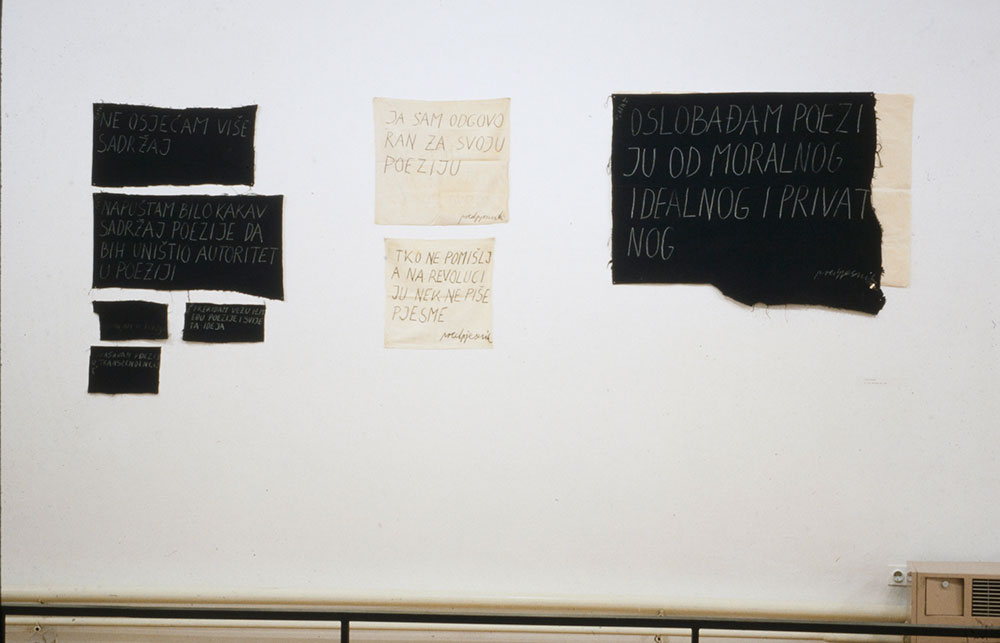 NE OSJEĆAM VIŠE
SADRŽAJ
NAPUŠTAM BILO KAKAV
SADRŽAJ POEZIJE DA
BIH UNIŠTIO AUTORITET
U POEZIJI
VEZU IZM
EĐU POEZIJE I SVIJE
TA IDEJA
JA SAM ODGOVO
RAN ZA SVOJU
POEZIJU
TKO NE POMIŠLJ
A NA REVOLUCI
JU NEK NE PIŠE
PJESME
OSLOBAĐAM POEZI
JU OD MORALNOG
IDEALNOG I PRIVAT
NOG
R